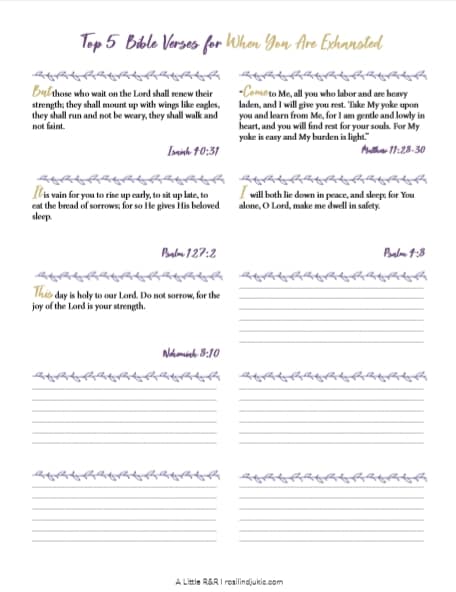 Top 5 Bible Verses for When You Are Exhausted
But those who wait on the Lord shall renew their
strength; they shall mount up with wings like eagles,
they shall run and not be weary, they shall walk and
not faint.
Isaiah 40:31
"Come to Me, all you who labor and are heavy
laden, and I will give you rest. Take My yoke upon
you and learn from Me, for I am gentle and lowly in
heart, and you will find rest for your souls. For My
yoke is easy and My burden is light."
Matthew 11:28-30
It is vain for you to rise up early, to sit up late, to
eat the bread of sorrows; for so He gives His beloved
sleep.
Psalm 127:2
I will both lie down in peace, and sleep; for You
alone, O Lord, make me dwell in safety.
Psalm 4:8
This day is holy to our Lord. Do not sorrow, for the
joy of the Lord is your strength.
Nehemiah 8:10
A Little R&R | rosilindjukic.com